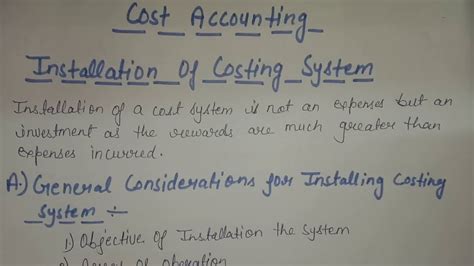 Cost Accounting
Installation Of Costing System
Installation of a cost system is not an expenses but an
investment as the rewards are much greater than
expenses incurred.
A.) General Considerations for Installing Costing
System :-
1) Objective of Installation the System